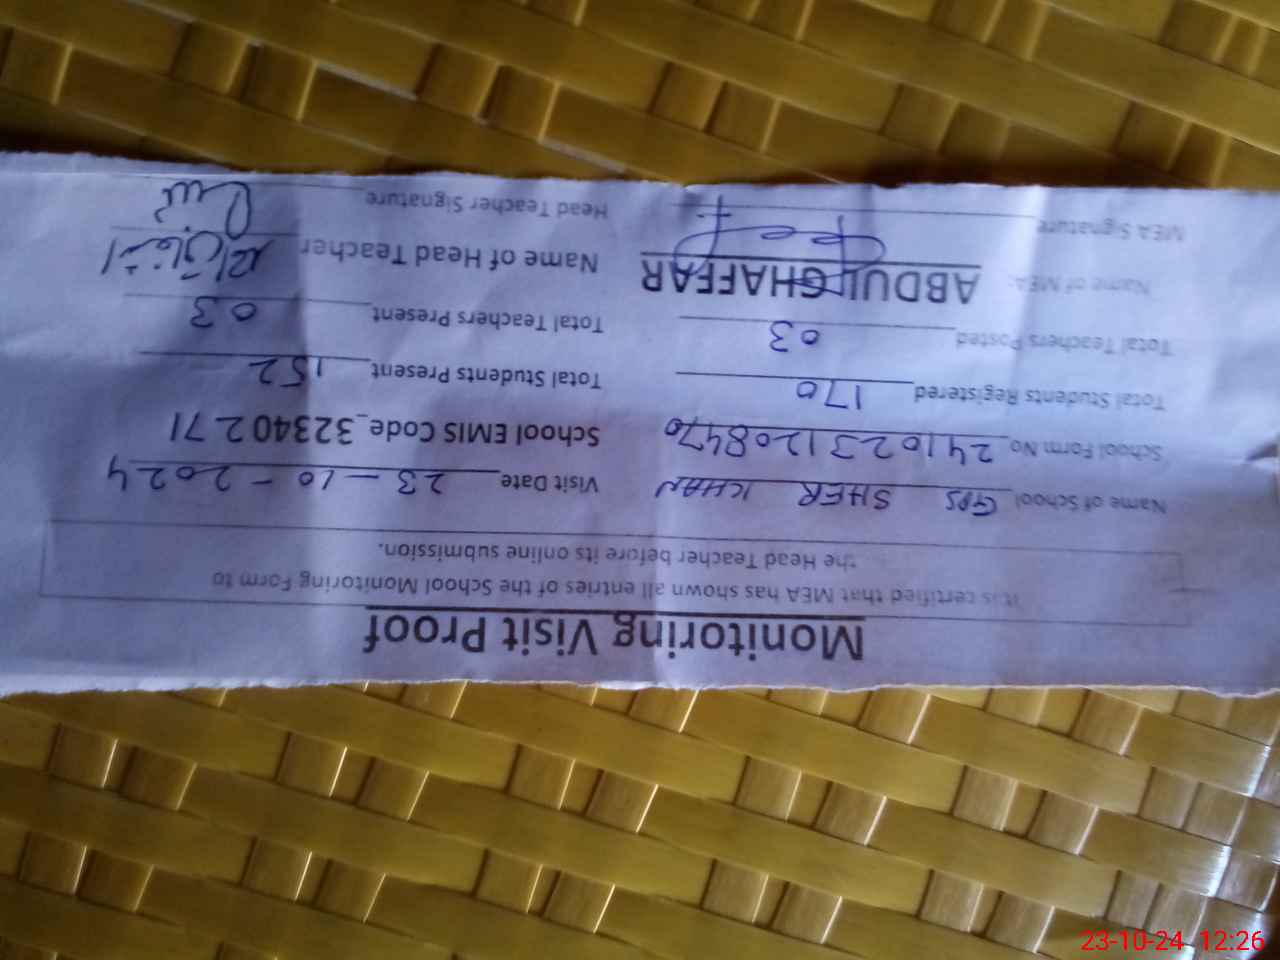 Monitoring Visit Proof
It is certified that MEA has shown all entries of the School Monitoring Form to
the Head Teacher before its online submission.
Name of School GPS SHER KHAN Visit Date 23-10-2024
School Form No 2410231208470 School EMIS Code_32340271
Total Students Registered 170 Total Students Present 152
Total Teachers Posted 03 Total Teachers Present 03
Name of MEA: ABDUL GHAFFAR Name of Head Teacher
MEA Signature Head Teacher Signature
23-10-24 12:26